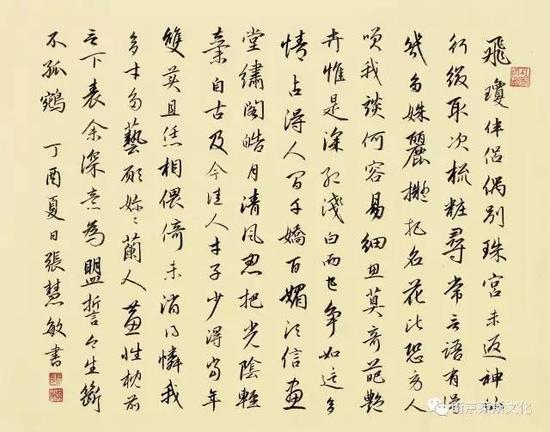 飛瓊伴侶偶別珠宮未返神仙
行綴取次梳粧尋常言語有得
幾多姝麗擬把名花比恐旁人
咲我談何容易細思算奇葩艷
卉惟是深紅淺白而已爭如這多
情占得人間千嬌百媚須信畫
堂繡閣皓月清風忍把光陰輕
棄自古及今佳人才子少得當年
雙美且恁相偎倚未消得憐我
多才多藝願妳妳蘭人蕙性枕前
言下表余深意為盟誓今生斷
不孤鴛 丁酉夏日張慧敏書
南京文化